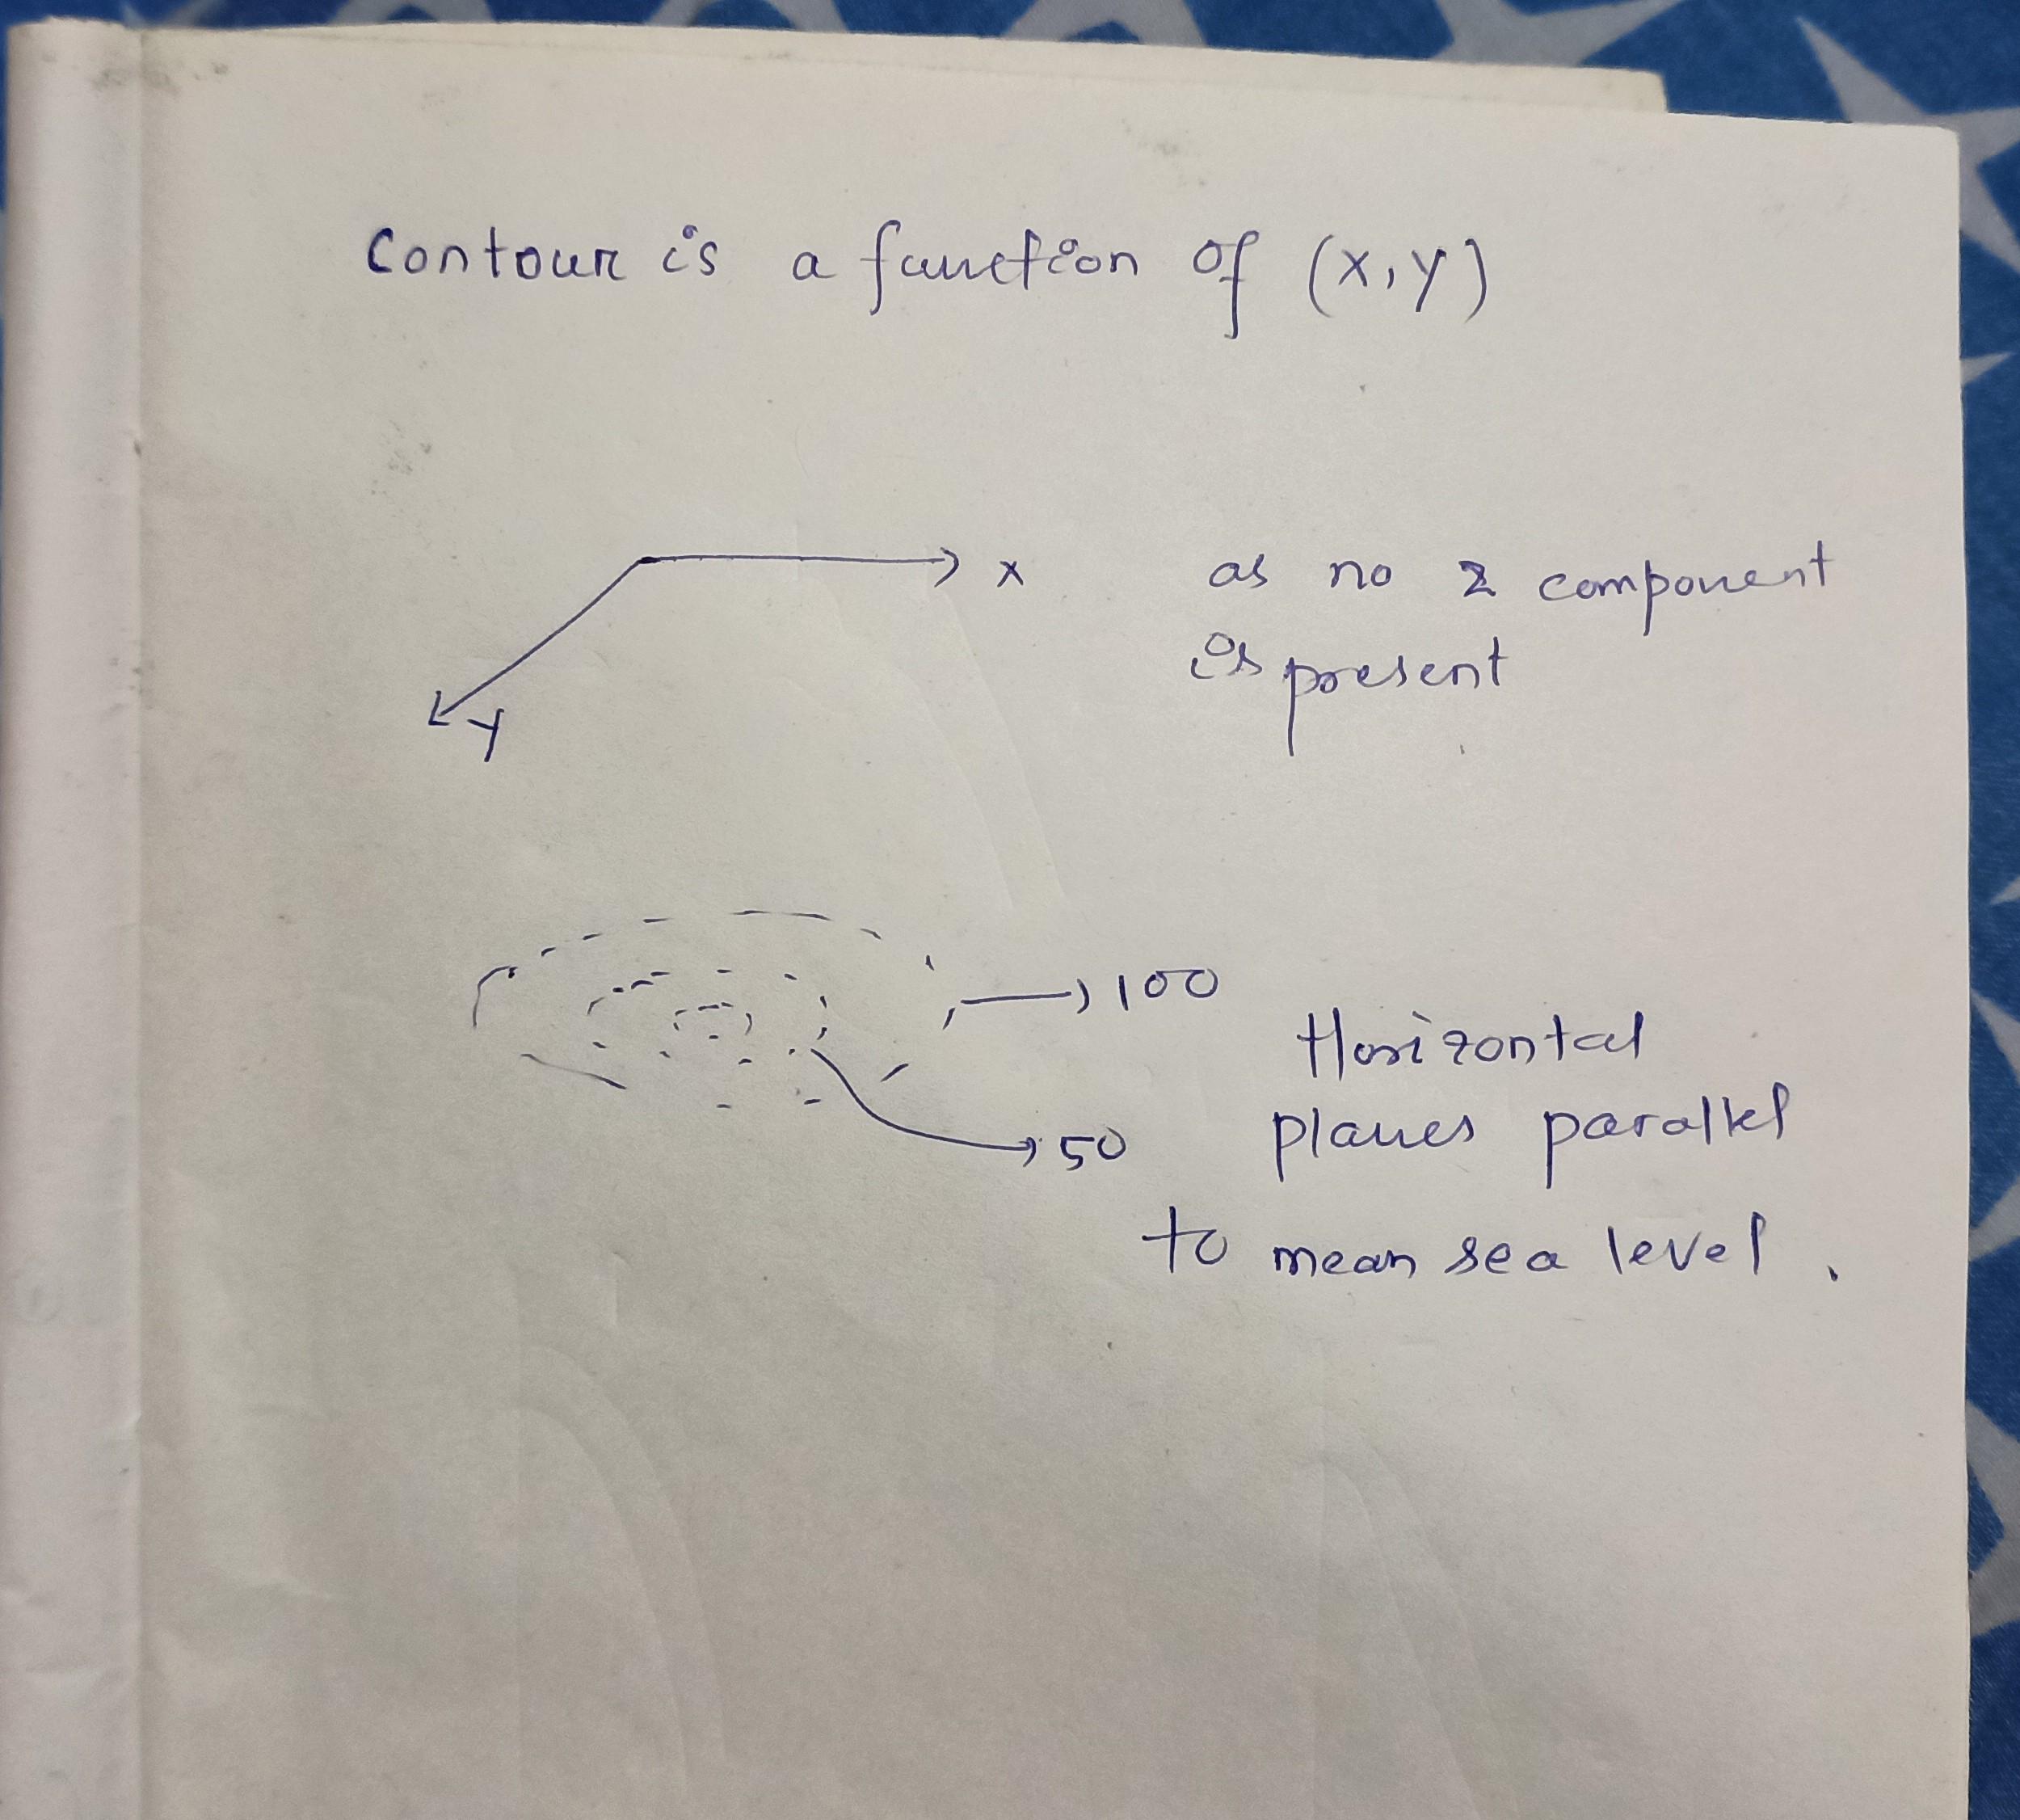 Contour is a function of (X,Y)
X
as no z component
is present
Y
100
Horizontal
planes parallel
50
to mean sea level.